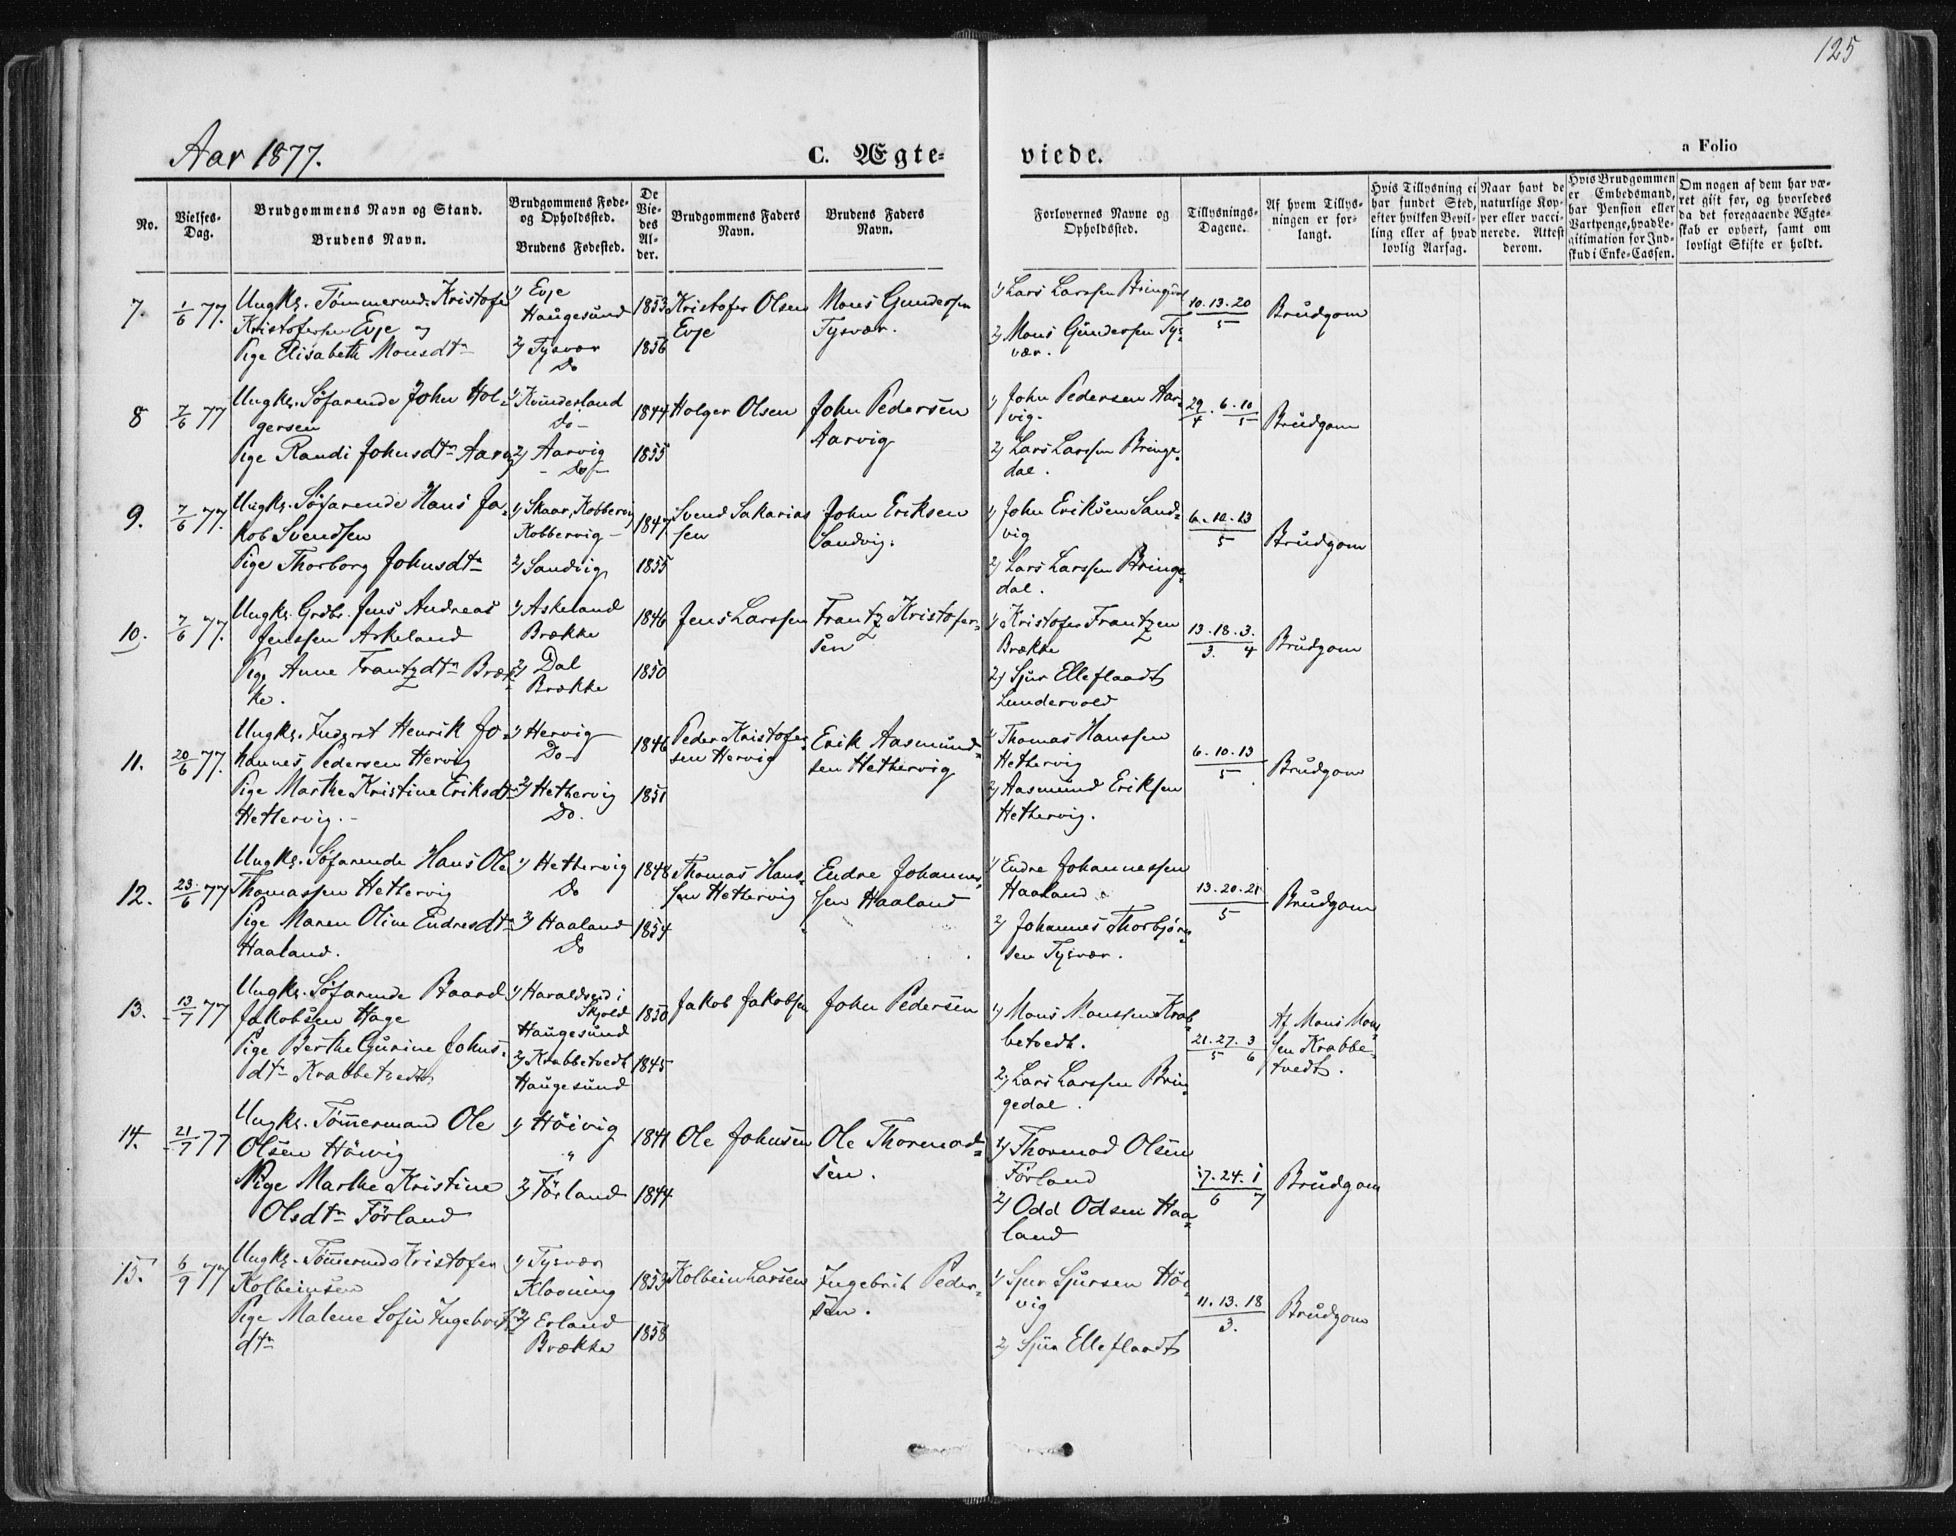 125
Aar 1877.
C. Ægte-
viede.
a Folio
No.
Vielses-
Dag.
Brudgommens Navn og Stand.
Brudens Navn.
Brudgommens Føde-
og Opholdssted.
Brudens Fødested.
De
Vie-
des
Al-
der.
Brudgommens Faders
Navn.
Brudens Faders
Navn.
Forlovernes Navne og
Opholdssted.
Tillysnings-
Dagene.
Af hvem Tillys-
ningen er for-
langt.
Hvis Tillysning ei
har fundet Sted,
efter hvilken Bevil-
ling eller af hvad
lovlig Aarsag.
Naar havt de
naturlige Kop-
per eller vacci-
nerede. Attest
derom.
Hvis Brudgommen
er Embedsmand,
har Pension eller
Vartpenge, hvad Le-
gitimation for Ind-
skud i Enke-Cassen.
Om nogen af dem har væ-
ret gift før, og hvorledes
da det foregaaende Ægte-
skab er ophørt, samt om
lovligt Skifte er holdt.
7.
1/6 77.
Ungkr. Tømmermd. Kristofer
Kristofersen Evje og
Pige Elisabeth Monsdtr
1) Evje
Haugesund
2) Tysvær
Do
1853
1856
Kristofer Olsen
Evje
Mons Gundersen
Tysvær.
1) Lars Larssen Bringedal
2) Mons Gundersen Tys-
vær.
10.13.20
5
Brudgom
8
7/6 77
Ungkr. Søfarende John Hol-
gersen
Pige Randi Johnsdtr Aarvig
1) Kvinderland
Do
2) Aarvig
Do
1844
1855
Holger Olsen
John Pedersen
Aarvig
1) John Pedersen Aar-
vig.
2) Lars Larssen Bringe-
dal.
29/4 . 6.10/5
Brudgom
9.
7/6 77.
Ungkr. Søfarende Hans Ja-
kob Svendsen
Pige Thorborg Johnsdtr
1) Skaar, Kobbervig
Kobbervig
2) Sandvig
1847
1855
Svend Sakarias
sen
John Eriksen
Sandvig.
1) John Eriksen Sand-
vig
2) Lars Larssen Bringe-
dal.
6.10.13
5
Brudgom
10.
7/6 77.
Ungkr. Grdbr. Jens Andreas
Jenssen Askeland
Pige Anne Frantzdtr Bræk-
ke.
1) Askeland
Brække
2) Dal
Brække
1846
1850
Jens Larssen
Frantz Kristofer-
sen
1) Kristofer Frantzen
Brække
2) Sjur Elleflaadt
Lundervold
13.18.3.
3. 4
Brudgom
11.
20/6 77.
Ungkr. Inderst Henrik Jo-
hannes Pedersen Hervig
Pige Marthe Kristine Eriksdtr
Hethervig.
1) Hervig
Do
2) Hethervig
Do.
1846
1851
Peder Kristofer-
sen Hervig
Erik Aasmund-
sen Hethervig
1) Thomas Hanssen
Hethervig
2) Aasmund Eriksen
Hethervig.
6.10.13
5
Brudgom
12.
23/6 77
Ungkr. Søfarende Hans Ole
Thomassen Hethervig
Pige Maren Oline Endresdtr
Haaland.
1) Hethervig
Do
2) Haaland
Do
1848
1854
Thomas Hans-
sen Hethervig
Endre Johannes-
sen Haaland
1) Endre Johannessen
Haaland
2) Johannes Thorbjørn-
sen Tysvær.
13.20.21
5
Brudgom
13.
13/7 77
Ungkr. Søfarende Baard
Jakobsen Hage
Pige Berthe Gurine Johns-
dtr Krabbetvedt
1) Haraldseid i
Skjold
Haugesund
2) Krabbetvedt
Haugesund
1850
1845
Jakob Jakobsen
John Pedersen
1) Mons Monssen Krab-
betvedt.
2) Lars Larssen Brin-
gedal.
21.27.3
5 6
Af Mons Mons-
sen Krabbe-
tvedt.
14.
21/7 77
Ungkr. Tømmermand Ole
Olsen Høivig
Pige Marthe Kristine
Olsdtr Førland
1) Høivig
"
2) Førland
1841
1844
Ole Johnsen
Ole Thormod-
sen.
1) Thormod Olsen
Førland
2) Odd Odsen Haa-
land
17.24.1
6 7
Brudgom
15.
6/9 77
Ungkr. Tømmermd Kristofer
Kolbeinsen
Pige Malene Sofie Ingebrits-
dtr
1) Tysvær
Klovning
2) Erland
Brække
1853
1858
Kolbein Larsen
Ingebrit Peder-
sen.
1) Sjur Sjursen Høi-
vig
2) Sjur Elleflaadt
11.13.18
3.
Brudgom